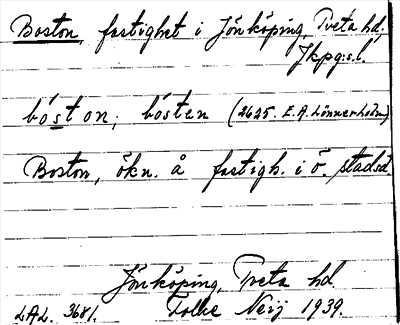 Boston, fastighet i Jönköping, Tveta hd.,
Jkpg:s l.
bo'ston, bo'sten (2625. E.A. Lönnerholm)
Boston, ökn. å fastigh. i ö. stadsd.
Jönköping, Tveta hd
LAL. 3681. Folke Neij 1939.